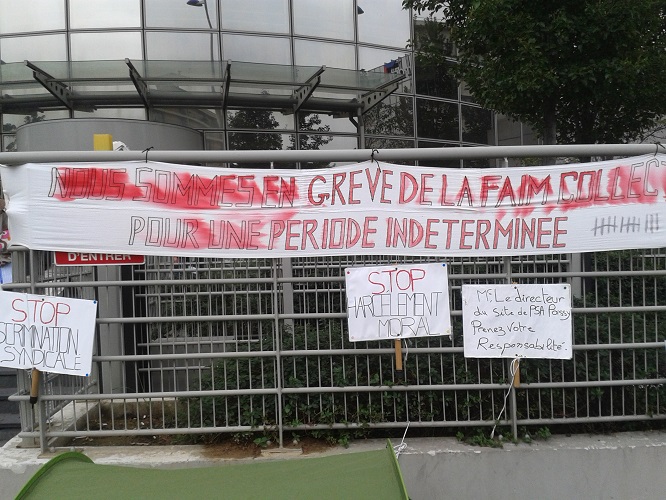 NOUS SOMMES EN GREVE DE LA FAIM COLLECT
POUR UNE PERIODE INDETERMINEE
D'ENTRER
STOP
SERMINATION
SYNDICALE
STOP
HARCELEMENT
MORAL
Mr Le directeur
du Site de PSA Poissy
Prenez Votre
Responsabilité